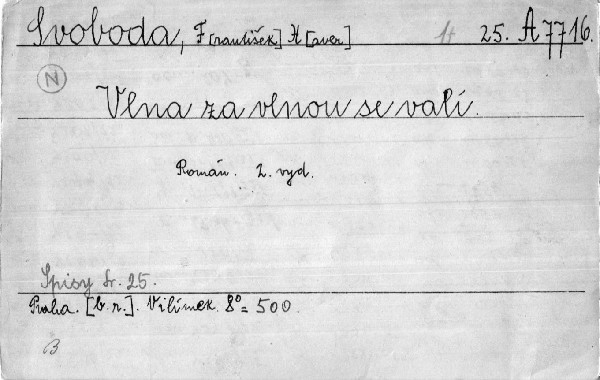 Svoboda, F[rantišek] X[aver] 25. A 7716.
N
Vlna za vlnou se valí.
Román. 2. vyd.
Spisy sv. 25.
Praha. [b. r.]. Vilímek. 8° = 500.
B